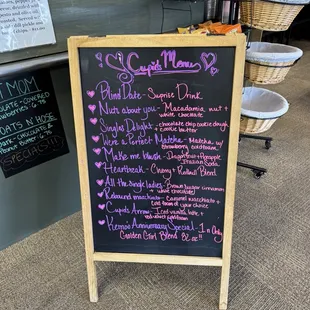 Cupid Menu
Blind Date ~ Surprise Drink
Nuts about you - Macadamia nut +
white chocolate
Singles Delight - chocolate chip cookie dough
+ cookie butter
We're a Perfect Matcha - Matcha w/
Strawberry coldfoam
Make me blush - Dragonfruit + Pineapple
Italian Soda
Heartbreak - Cherry + Redbull Blend
All the single ladies - Brown sugar cinnamon
+ white chocolate
Rebound machiato - Caramel macchiato +
cold foam of your choice
Cupids Arrow - Iced vanilla latte +
Anniversary Special - In Only
Golden Girl Blend 8z oz!!
T MOM
CHOCOLATE - COVERED
OATS N HOSE
DARK - CHOCOLATE &
PEANUT BUTTER
SPECIALS!!!